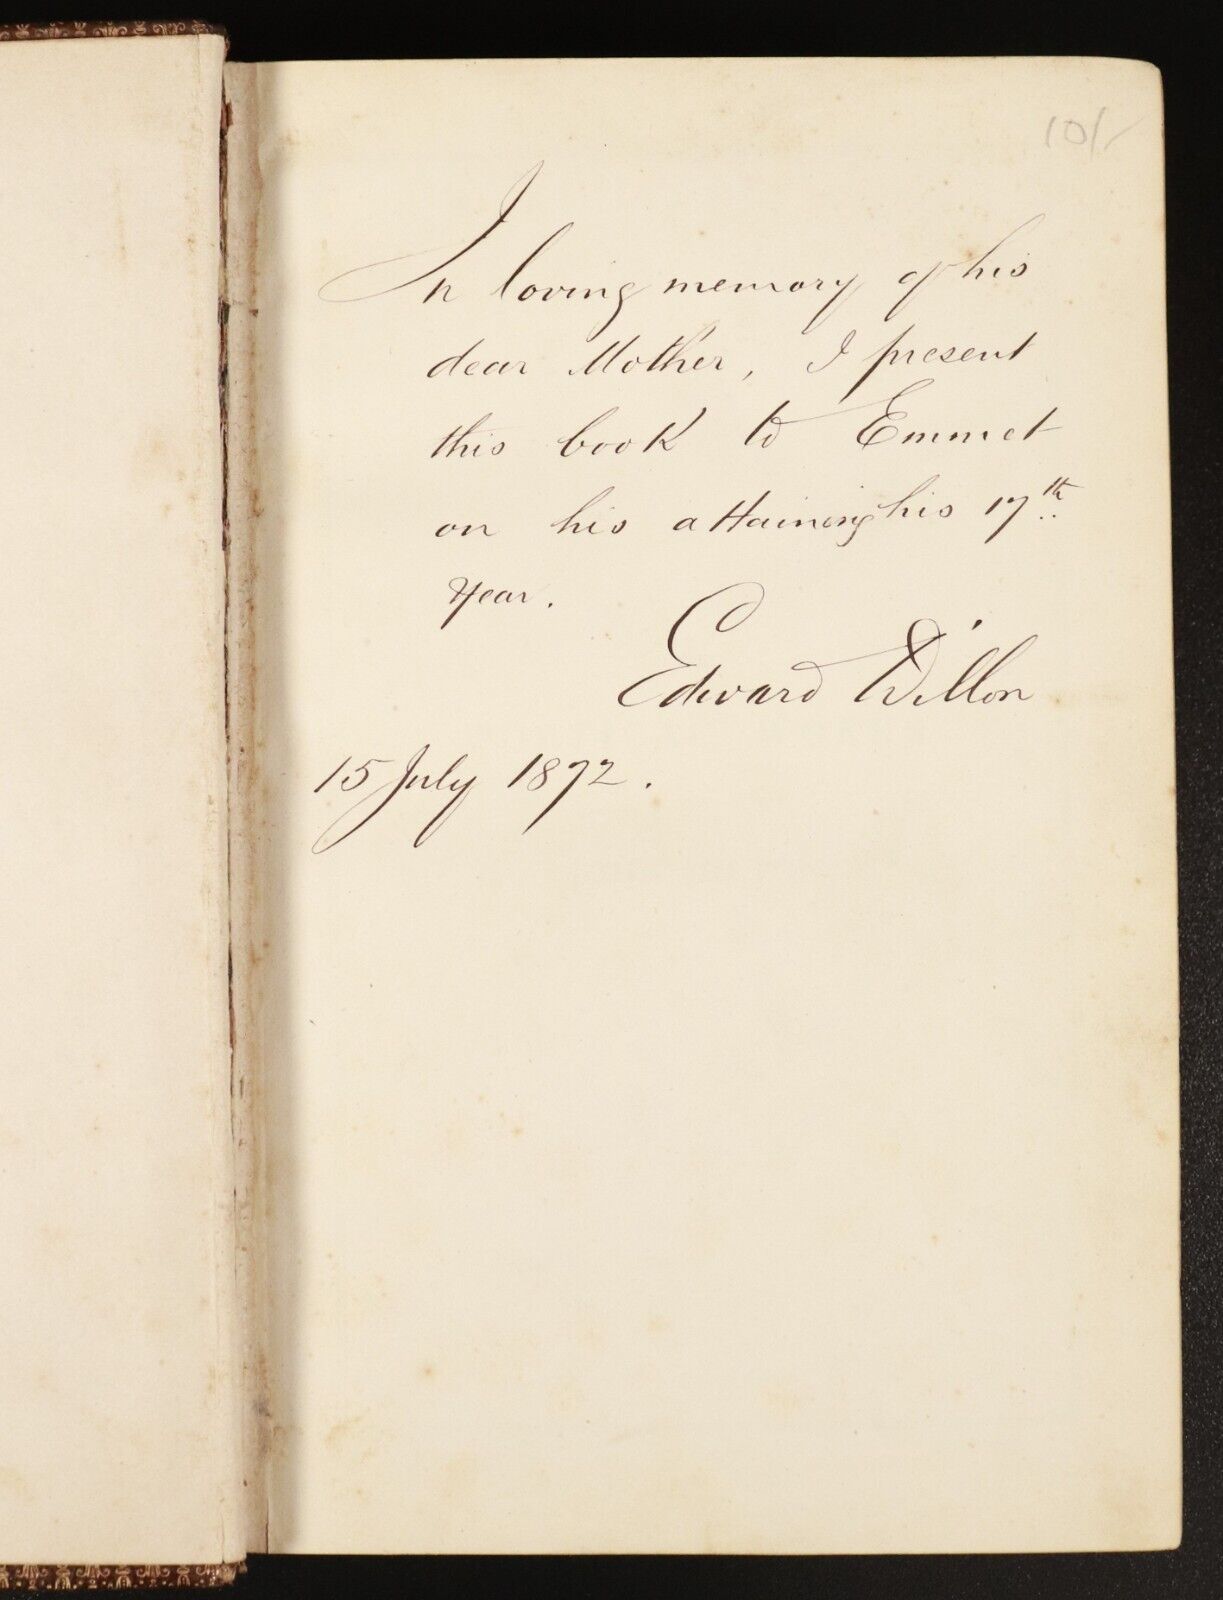 10/-
In loving memory of his
dear Mother, I present
this book to Emmet
on his attaining his 17th
Year.
Edward Dillon
15 July 1872.